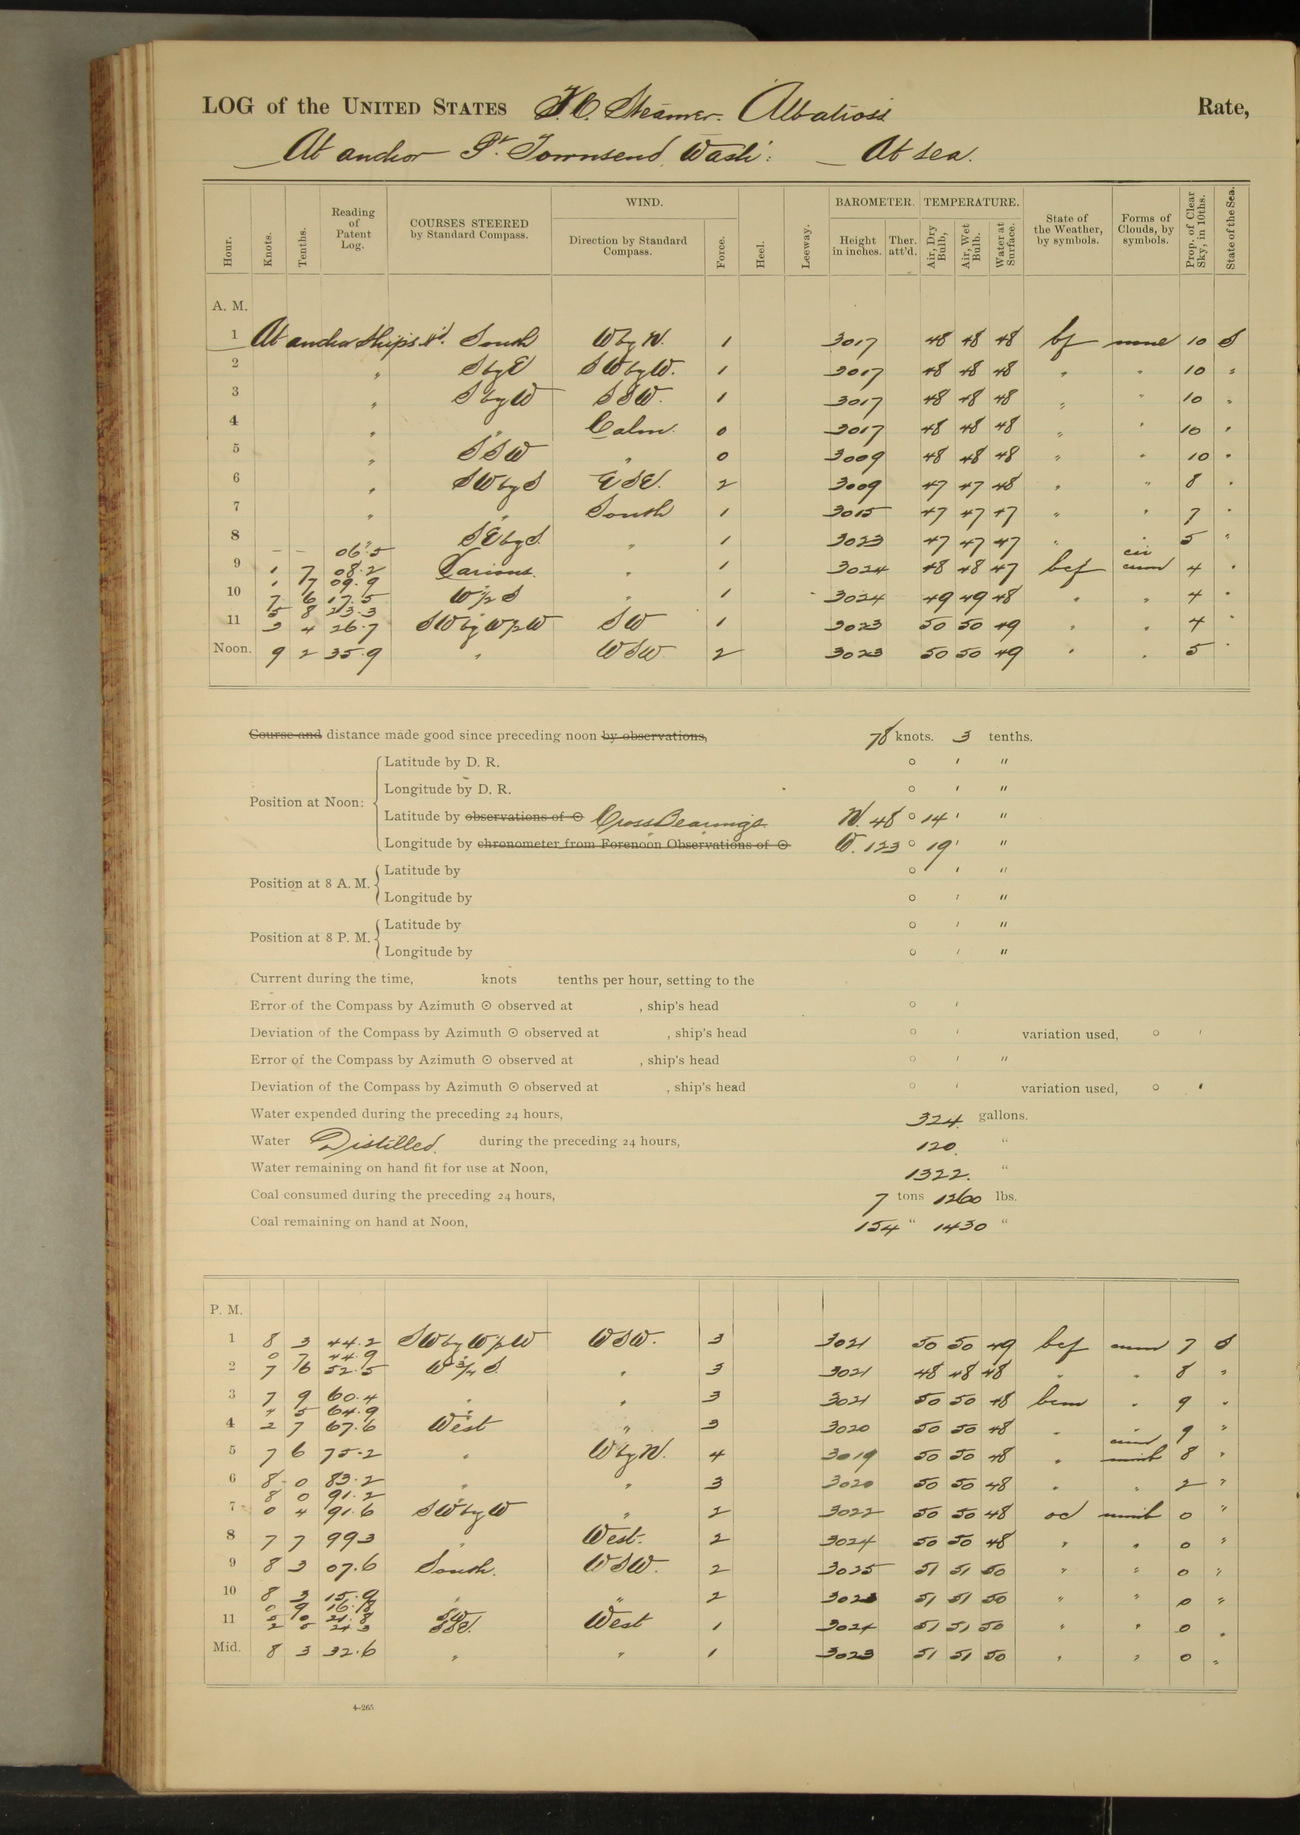 LOG of the UNITED STATES F. C. Steamer. Albatross Rate,
At anchor Pt. Townsend, Wash: — At sea.
Hour. Knots. Tenths. Reading of Patent Log. COURSES STEERED by Standard Compass. WIND. Direction by Standard Compass. Force. Heel. Leeway. BAROMETER. Height in inches. Ther. att'd. TEMPERATURE. Air, Dry Bulb, Air, Wet Bulb. Water at Surface. State of the Weather, by symbols. Forms of Clouds, by symbols. Prop. of Clear Sky, in 10ths. State of the Sea.
A. M.
1 At anchor Ship's h'd. South W by N. 1 3017 48 48 48 bf none 10 S
2 " S by E SW by W. 1 3017 48 48 48 " " 10 "
3 " S by W SSW. 1 3017 48 48 48 " " 10 "
4 " " Calm. 0 3017 48 48 48 " " 10 "
5 " SSW " 0 3009 48 48 48 " " 10 "
6 " SW by S ESE. 2 3009 47 47 48 " " 8 "
7 " " South 1 3015 47 47 47 " " 7 "
8 SE by S. " 1 3023 47 47 47 " " 5 "
– – 06.5
9 1 7 08.2 Various. " 1 3024 48 48 47 bcf cir cum 4 "
1 7 09.9
10 7 6 17.5 W ½ S " 1 3024 49 49 48 " " 4 "
5 8 23.3
11 3 4 26.7 SW by W ½ W SW 1 3023 50 50 49 " " 4 "
Noon. 9 2 35.9 " WSW 2 3023 50 50 49 " " 5 "
Course and distance made good since preceding noon by observations, 78 knots. 3 tenths.
Position at Noon:
Latitude by D. R. ° ′ ″
Longitude by D. R. ° ′ ″
Latitude by observations of ☉ Cross Bearings N. 48 ° 14 ′ ″
Longitude by chronometer from Forenoon Observations of ☉ W. 123 ° 19 ′ ″
Position at 8 A. M.
Latitude by ° ′ ″
Longitude by ° ′ ″
Position at 8 P. M.
Latitude by ° ′ ″
Longitude by ° ′ ″
Current during the time, knots tenths per hour, setting to the
Error of the Compass by Azimuth ☉ observed at , ship's head ° ′
Deviation of the Compass by Azimuth ☉ observed at , ship's head ° ′ variation used, ° ′
Error of the Compass by Azimuth ☉ observed at , ship's head ° ′ ″
Deviation of the Compass by Azimuth ☉ observed at , ship's head ° ′ variation used, ° ′
Water expended during the preceding 24 hours, 324. gallons.
Water Distilled. during the preceding 24 hours, 120. "
Water remaining on hand fit for use at Noon, 1322. "
Coal consumed during the preceding 24 hours, 7 tons 1260 lbs.
Coal remaining on hand at Noon, 154 " 1430 "
P. M.
1 8 3 44.2 SW by W ½ W WSW. 3 3021 50 50 49 bcf cum 7 S
0 7 44.9
2 7 6 52.5 W ¾ S. " 3 3021 48 48 48 " " 8 "
3 7 9 60.4 " " 3 3021 50 50 48 bcm " 9 "
4 5 64.9
4 2 7 67.6 West " 3 3020 50 50 48 " " 9 "
5 7 6 75.2 " W by N. 4 3019 50 50 48 " 8 "
6 8 0 83.2 " " 3 3020 50 50 48 " " 2 "
8 0 91.2
7 0 4 91.6 SW by W " 2 3022 50 50 48 oc nimb 0 "
8 7 7 993 " West. 2 3024 50 50 48 " " 0 "
9 8 3 07.6 South. WSW. 2 3025 51 51 50 " " 0 "
10 8 3 15.9 " " 2 3023 51 51 50 " " 0 "
0 9 16.8
5 0 21.8
11 2 5 24.3 SSE. West 1 3024 51 51 50 " " 0 "
Mid. 8 3 32.6 " " 1 3023 51 51 50 " " 0 "
4–265